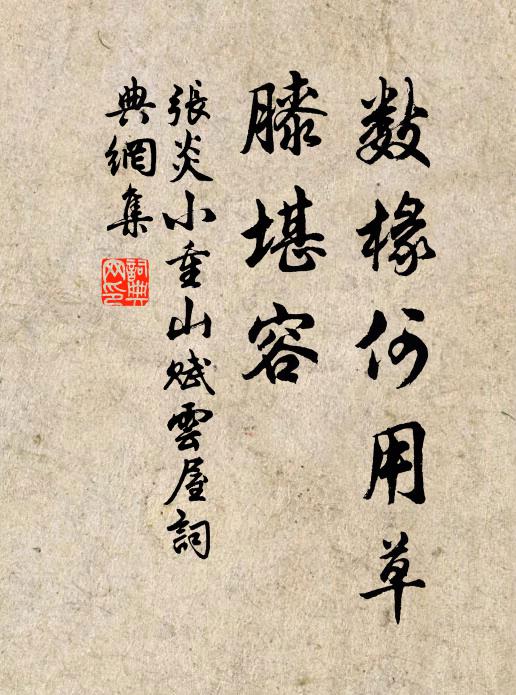 数椽何用草
膝堪容
張炎小重山賦雲屋詞
典網集
詞典
网印